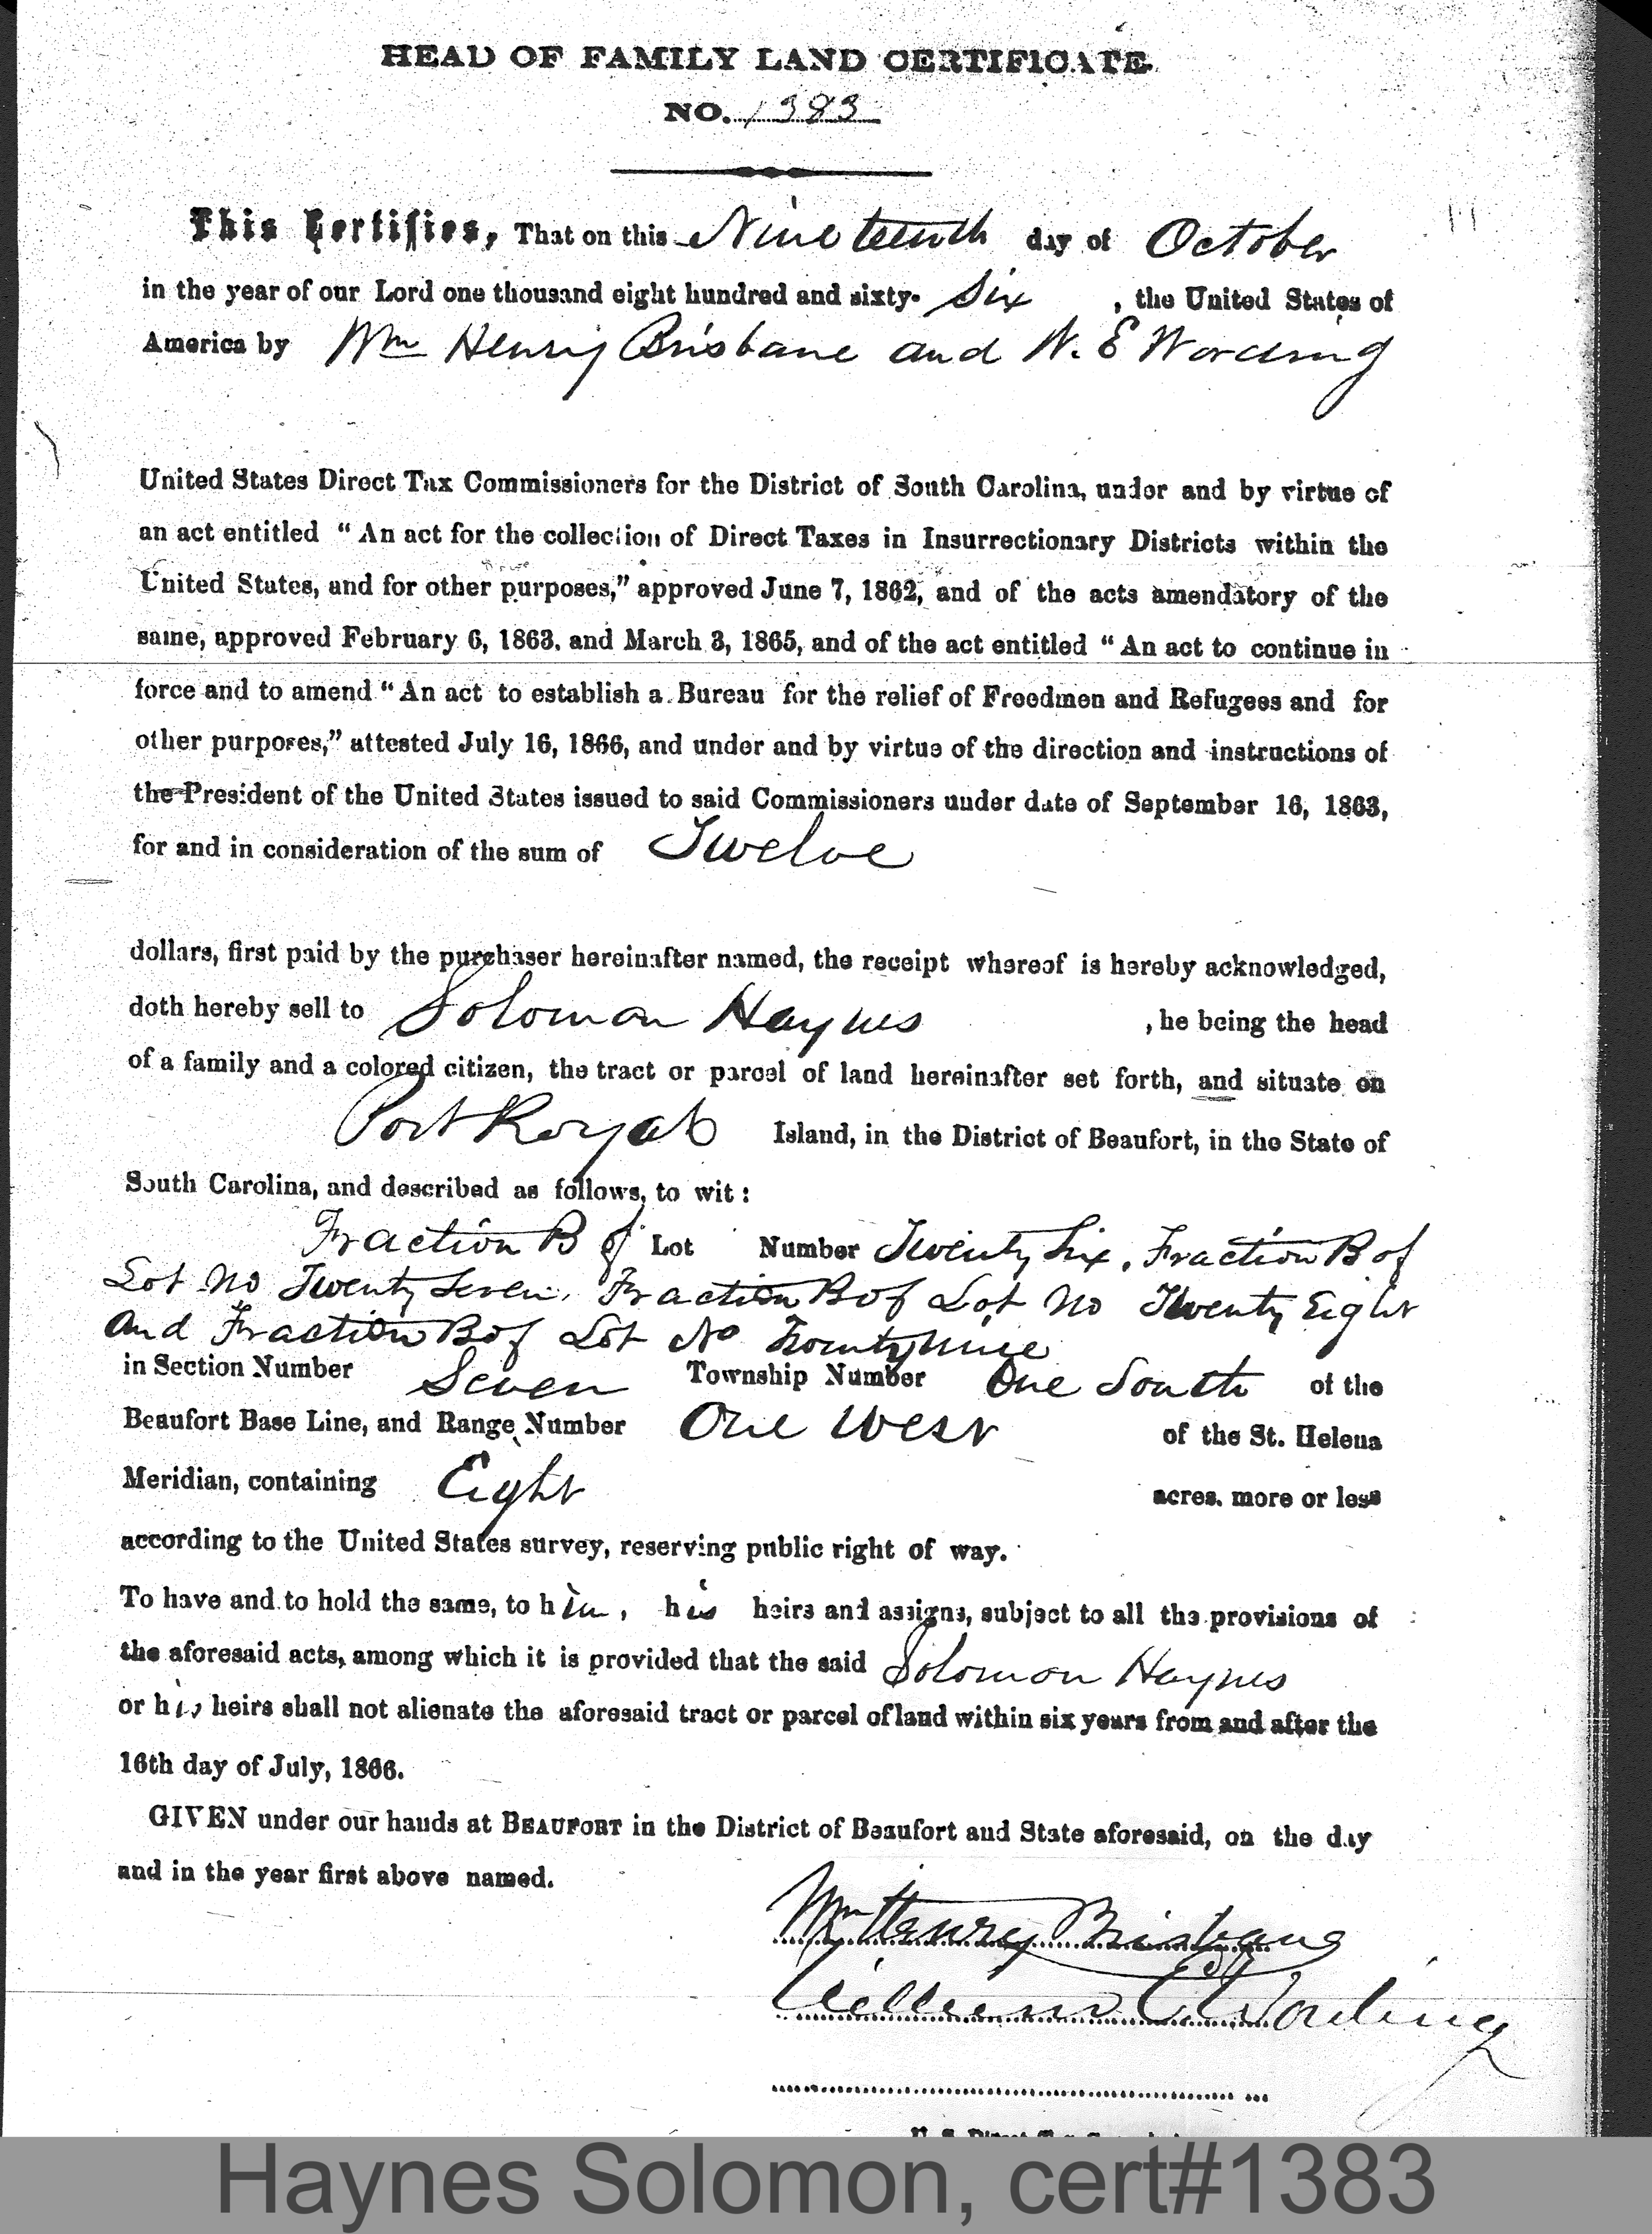 HEAD OF FAMILY LAND CERTIFICATE
NO. 1383
This Certifies, That on this Nineteenth day of October
in the year of our Lord one thousand eight hundred and sixty- Six , the United States of
America by Wm Henry Brisbane and W. E Wording
United States Direct Tax Commissioners for the District of South Carolina, under and by virtue of
an act entitled “ An act for the collection of Direct Taxes in Insurrectionary Districts within the
United States, and for other purposes,” approved June 7, 1862, and of the acts amendatory of the
same, approved February 6, 1863. and March 3, 1865, and of the act entitled “ An act to continue in
force and to amend “ An act to establish a Bureau for the relief of Freedmen and Refugees and for
other purposes,” attested July 16, 1866, and under and by virtue of the direction and instructions of
the President of the United States issued to said Commissioners under date of September 16, 1863,
for and in consideration of the sum of Twelve
dollars, first paid by the purchaser hereinafter named, the receipt whereof is hereby acknowledged,
doth hereby sell to Solomon Haynes , he being the head
of a family and a colored citizen, the tract or parcel of land hereinafter set forth, and situate on
Port Royal Island, in the District of Beaufort, in the State of
South Carolina, and described as follows, to wit :
Fraction B of Lot Number Twenty Six, Fraction B of
Lot No Twenty Seven, Fraction B of Lot No Twenty Eight
and Fraction B of Lot No Twenty Nine
in Section Number Seven Township Number One South of the
Beaufort Base Line, and Range Number One West of the St. Helena
Meridian, containing Eight acres. more or less
according to the United States survey, reserving public right of way.
To have and to hold the same, to him, his heirs and assigns, subject to all the provisions of
the aforesaid acts, among which it is provided that the said Solomon Haynes
or his heirs shall not alienate the aforesaid tract or parcel of land within six years from and after the
16th day of July, 1866.
GIVEN under our hands at BEAUFORT in the District of Beaufort and State aforesaid, on the day
and in the year first above named.
Wm Henry Brisbane
William E Wording
Haynes Solomon, cert#1383